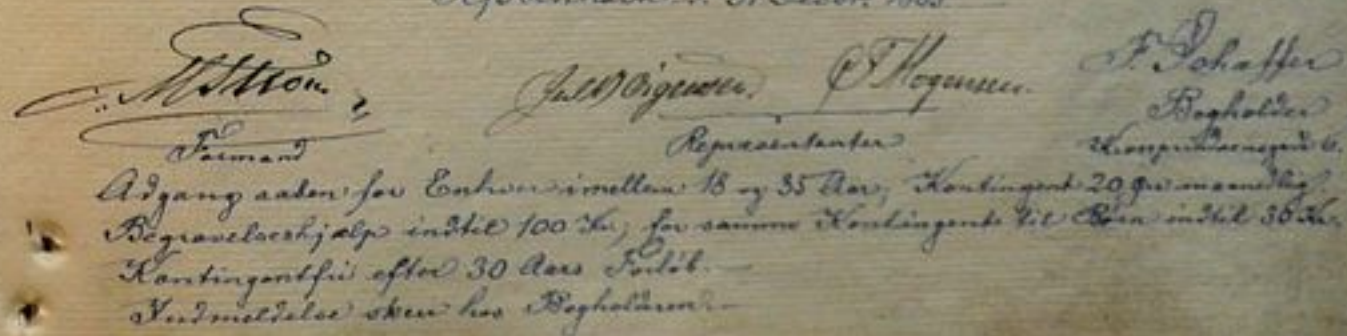 Kjøbenhavn d. 31 Decbr. 1885
M Strøm F. Schaffer
Formand Repræsentanter Bogholder
Kronprindsensgade 6.
Adgang aaben for Enhver imellem 18 og 35 Aar, Kontingent 20 Øre maanedlig.
Begravelseshjælp indtil 100 Kr, for samme Kontingent til Børn indtil 30 Kr.
Kontingentfri efter 30 Aars Forløb.
Indmeldelse skeer hos Bogholderen.